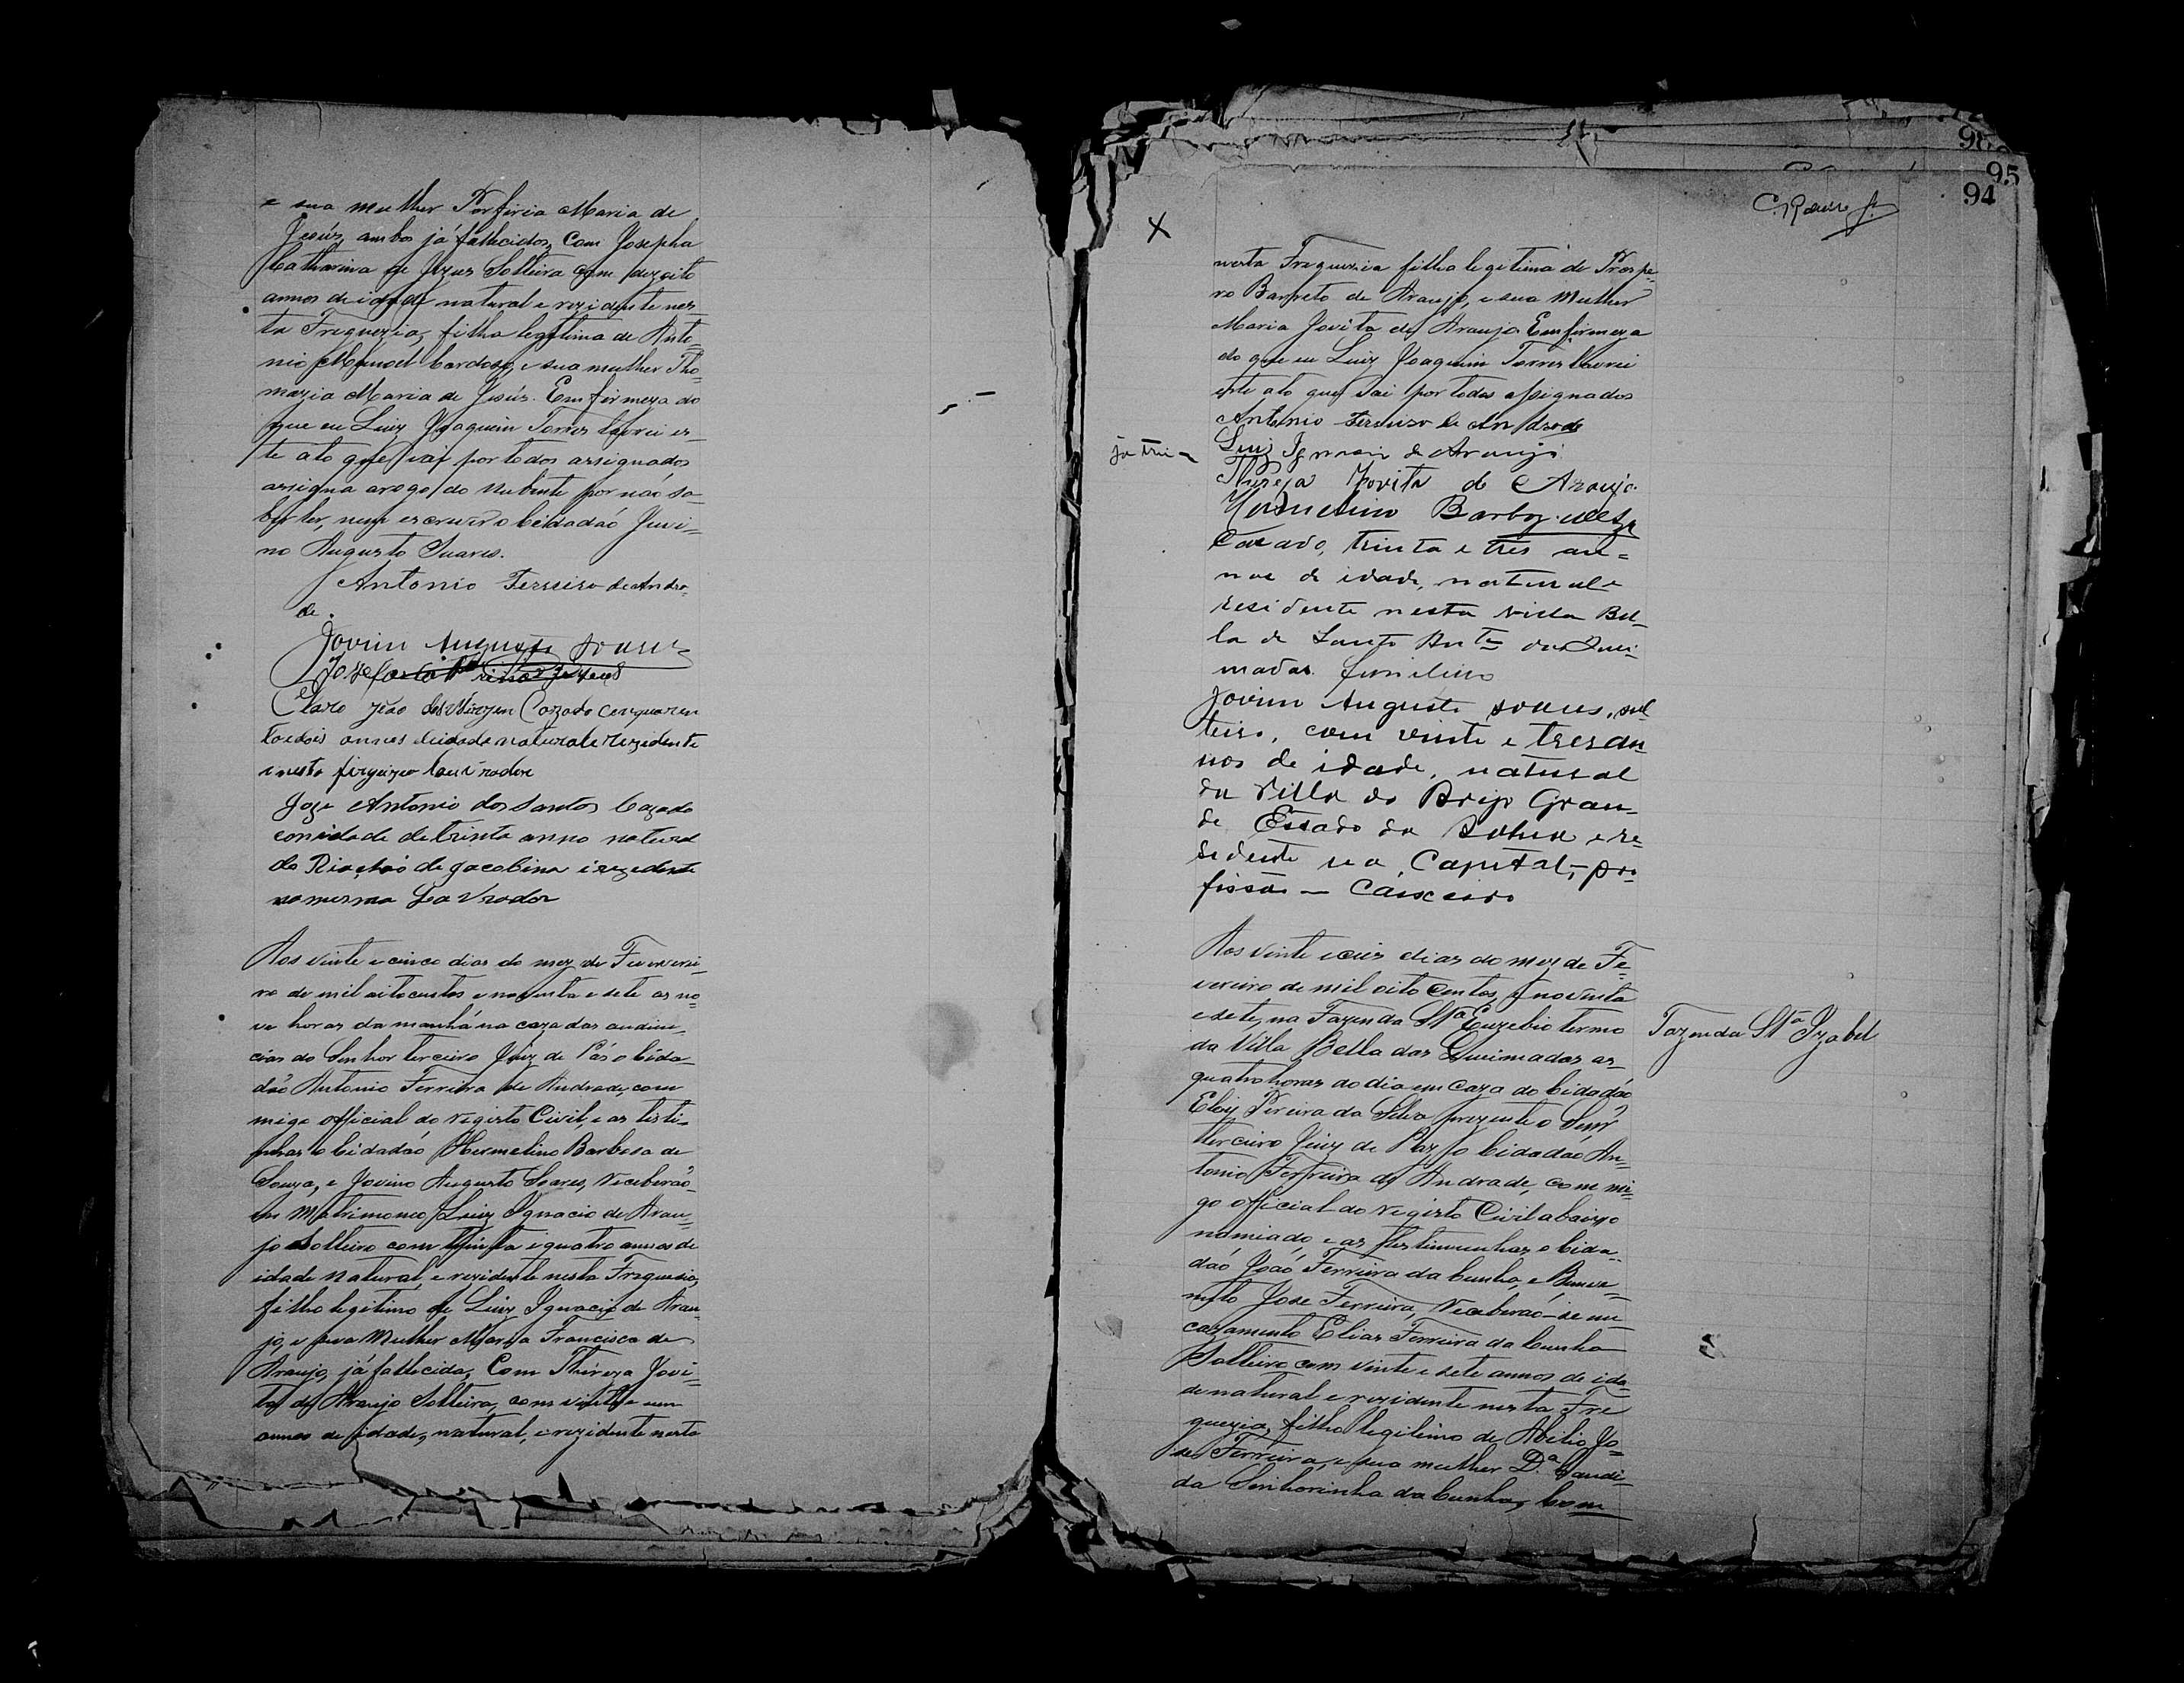 e sua mulher Porfiria Maria de
Jesús, ambos já fallecidos, Com Josepha
Catharina de Jezus Solteira com dezoito
annos de idade natural e rezidente nes-
ta Freguezia, filha legitima de Anto-
nio Manoel Cardoso, e sua mulher Tho-
mazia Maria de Jesús. Em firmeza do
que eu Luiz Joaquim Torres lavrei es-
te ato que vai por todos assignados
assigna arogo do Nubente por não sa-
ber ler, nem escrever o Cidadão Juvi-
no Augusto Suares.
Antonio Ferreira de Andra-
de.
Jovin Augusto Soares
Claro João das Virgem Cazado cenquaren
taedois annos deidade naturale rezidente
nesta firguizia lavrador
Joze Antonio dos Santos Cazado
conidade detrinta anno natural
do Riachaó de Jacobina irezedente
namesma Lavrador
Aos vinte e cinco dias do mez de Feverei-
ro de mil oitocentos e noventa e sete as no-
ve horas da manhá na caza das audien-
cias do Senhor terceiro Juiz de Pás o Cida-
dão Antonio Ferreira de Andrade, com
migo official do registo Civil, e as testi-
nhas o Cidadáo Hermelino Barbosa de
Souza, e Jovino Augusto Soares, Receberaõ-
em Matrimoneo Luiz Ignacio de Arau-
jo Solteiro com trinta e quatro annos de
idade natural, e rezidente nesta Freguesia,
filho legitimo de Luiz Ignacio de Arau-
jo, e sua Mulher Maria Francisca de
Araujo, já fallecida, Com Thereza Jovi-
ta de Araujo Solteira, com vinte e um
annos de idade, natural, e rezidente nesta
98
95
94
X
nesta Freguezia filha legitima de Prospe-
ro Barreto de Araujo, e sua Mulher
Maria Jovita de Araujo Em firmeza
do que eu Luiz Joaquim Torres lavrei
este ato que vai por todos assignados
Antonio Ferreira de Andrade
Luiz Ignacio de Araujo
Thereza Jovita de Araujo
Hermelino Barboz
Cazado, trinta e tres an-
nos de idade, natural e
residente nesta Villa Bel-
la de Santo Antº das Quei-
madas
Jovin Augusto Soares, sol-
teiro, com vinte e tres an-
nos de idade, natural
da Villa do Brejo Gran-
de Estado da Bahia e re-
sidente na Capital, pro-
fissão — Caixeiro
Aos vinte e seis dias do mez de Fe-
vereiro de mil oito Centos, e noventa
e sete, na Fazenda Stª Euzebio termo
da Villa Bella das Queimadas as
quatro horas do dia em Caza do Cidadáo
Eloy Pereira da Silva prezente o Senr
terceiro Juiz de Paz o Cidadão An-
tonio Ferreira de Andrade, com mi-
go official do registo Civil abaixo
nomiado, e as testimunhas o Cida-
dão João Ferreira da Cunha, e Benve-
nuto Jose Ferreira, Receberaõ-se em
cazamento Elias Ferreira da Cunha
Solteiro com vinte e sete annos de ida-
de natural e rezidente nesta Fre
guezia, filho legitimo de Abilio Jo-
se Ferreira, e sua mulher D.ª Candi-
da Senhorinha da Cunha, Com
Fazenda Stª Izabel